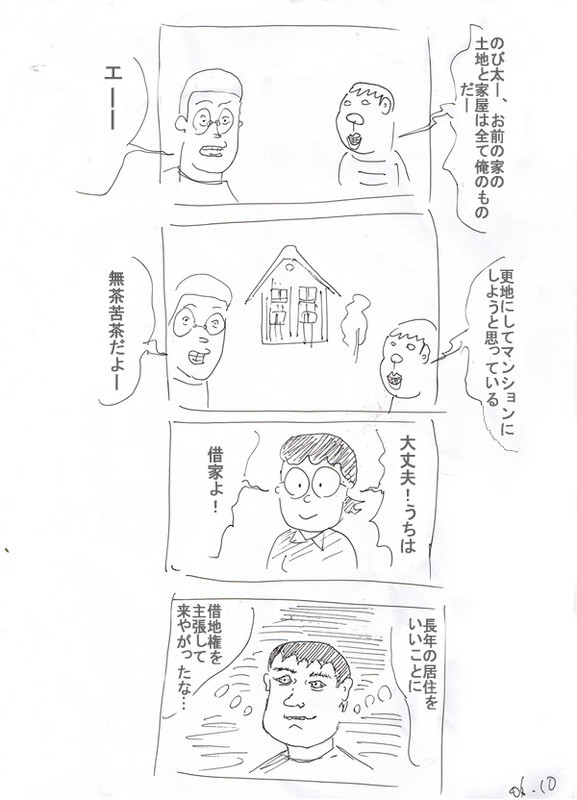 のび太ー、お前の家の
土地と家屋は全て俺のもの
だー
エーー
更地にしてマンションに
しようと思っている
無茶苦茶だよー
大丈夫！うちは
借家よ！
長年の居住を
いいことに
借地権を
主張して
来やがったな…